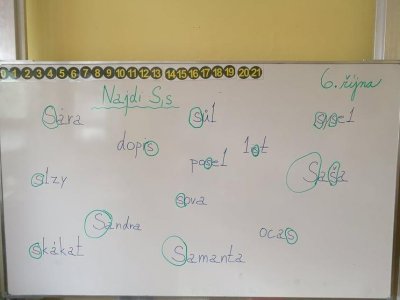 0 1 2 3 4 5 6 7 8 9 10 11 12 13 14 15 16 17 18 19 20 21
6. října
Najdi S,s
Sára sůl sysel
dopis posel 1est
slzy Saša
sova
Sandra ocas
skákat Samanta